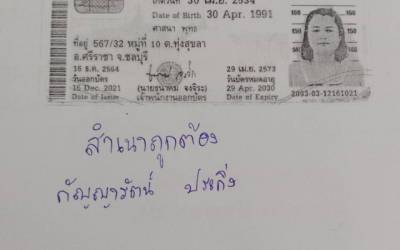 เกิดวันที่ 30 เม.ย. 2534
Date of Birth 30 Apr. 1991
ศาสนา พุทธ
ที่อยู่ 567/32 หมู่ที่ 10 ต.ทุ่งสุขลา
อ.ศรีราชา จ.ชลบุรี
16 ธ.ค. 2564
วันออกบัตร
16 Dec. 2021
Date of Issue
เจ้าพนักงานออกบัตร
29 เม.ย. 2573
วันบัตรหมดอายุ
29 Apr. 2030
Date of Expiry
2003-03-12161021
160
150
สำเนาถูกต้อง
กัญญารัตน์